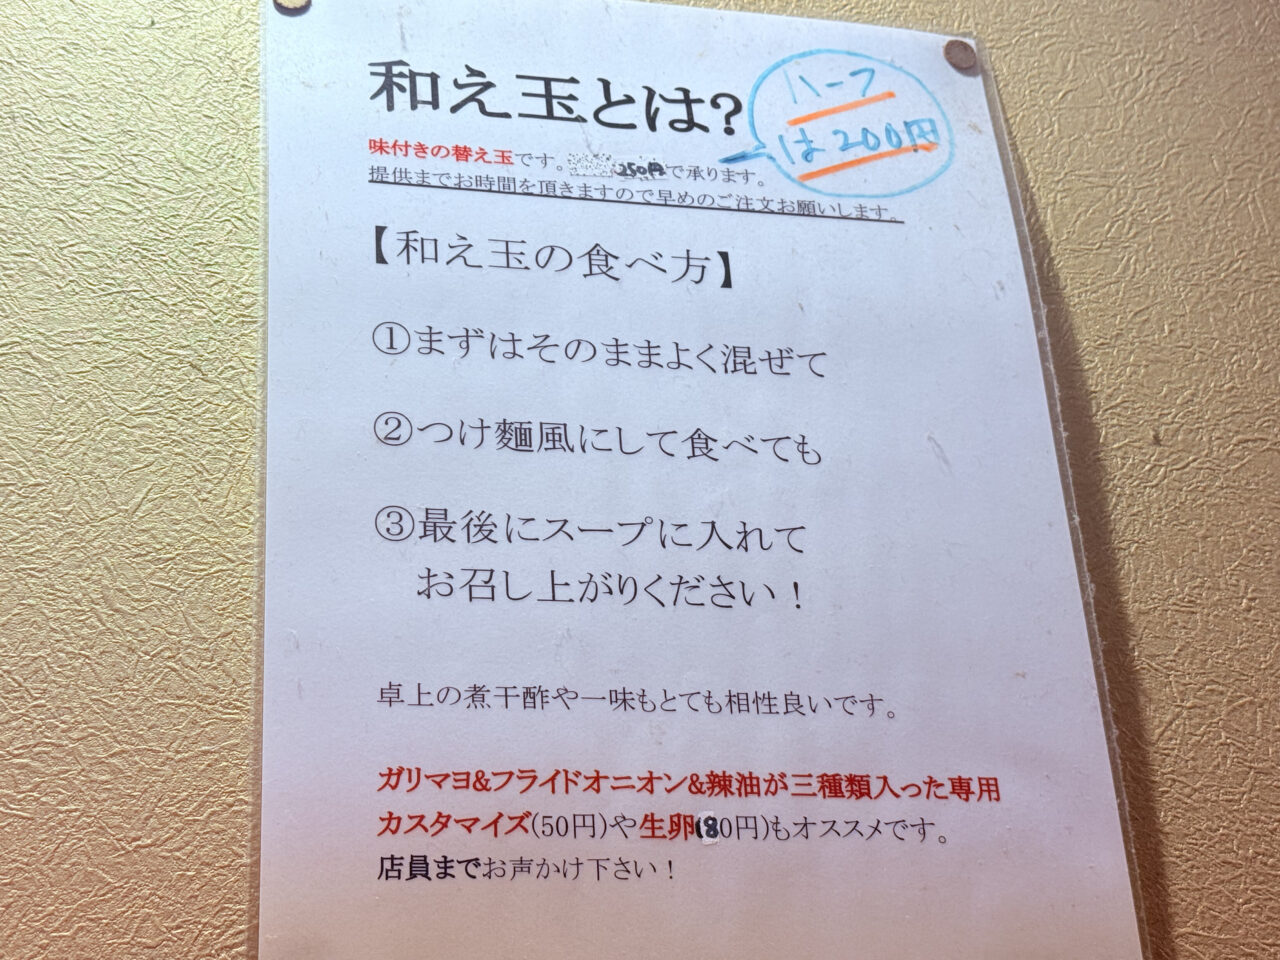 和え玉とは?
ハーフ
は200円
味付きの替え玉です。250円で承ります。
提供までお時間を頂きますので早めのご注文お願いします。
【和え玉の食べ方】
①まずはそのままよく混ぜて
②つけ麵風にして食べても
③最後にスープに入れて
お召し上がりください！
卓上の煮干酢や一味もとても相性良いです。
ガリマヨ&フライドオニオン&辣油が三種類入った専用
カスタマイズ(50円)や生卵(80円)もオススメです。
店員までお声かけ下さい！